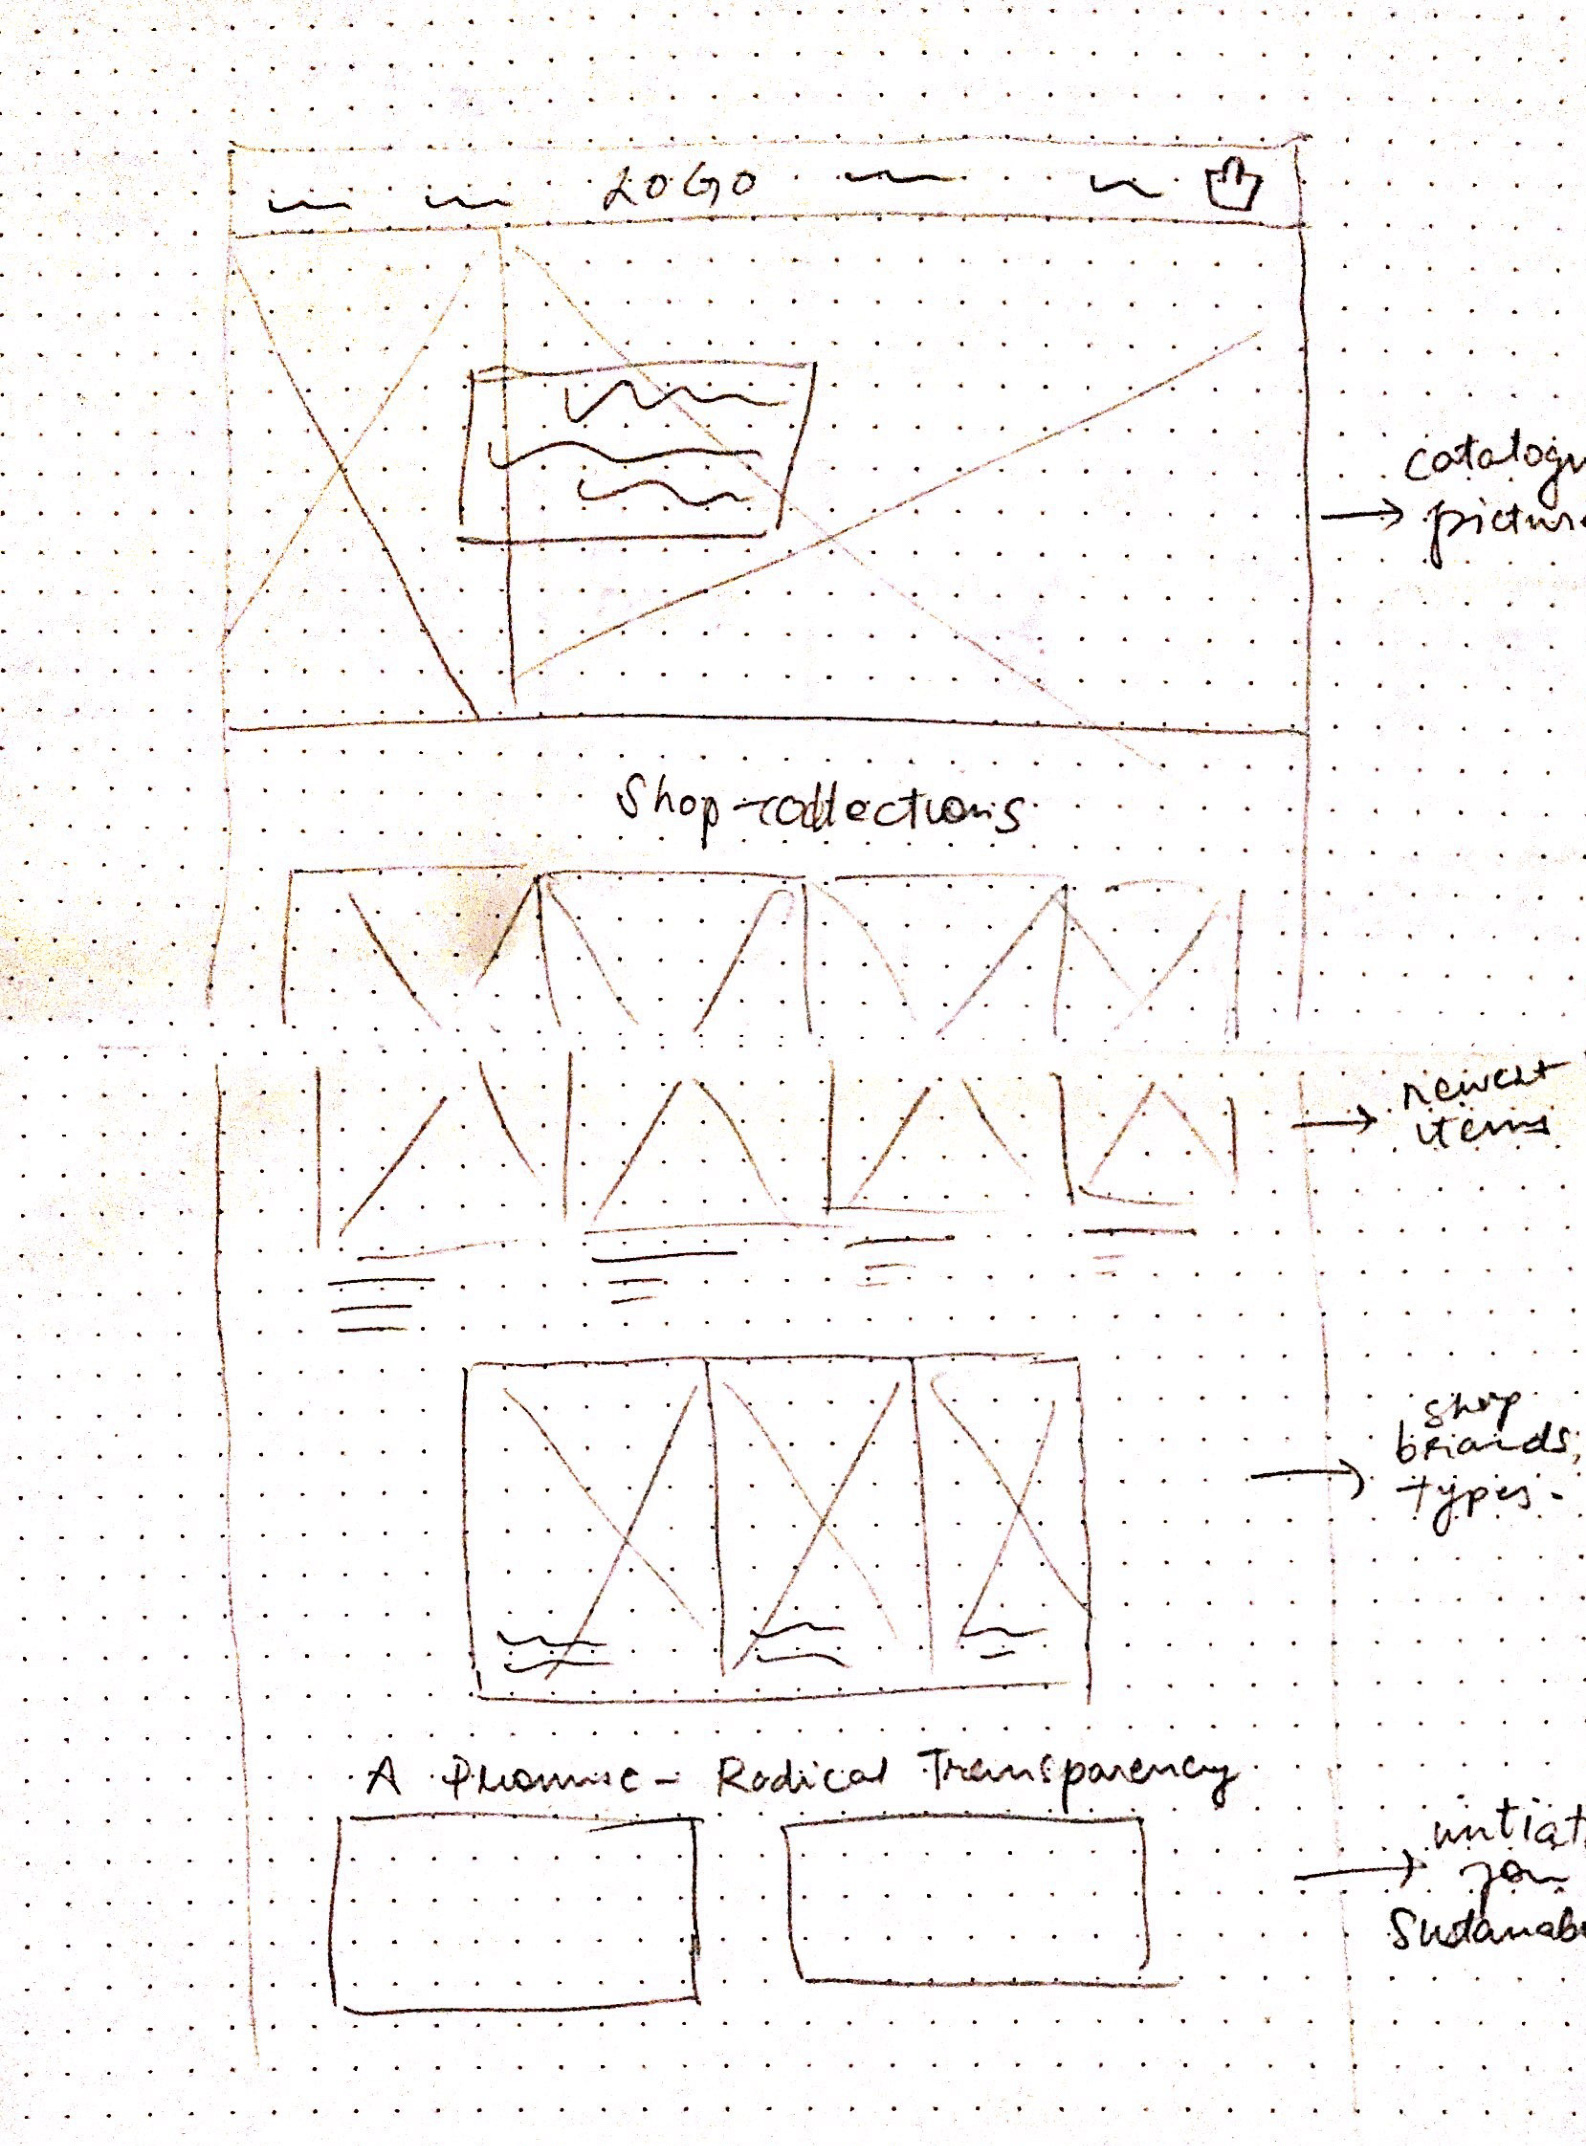 LOGO
catalogu
picture
Shop collections
newest
items
shop
brands,
types.
A Promise - Radical Transparency
intiat
for
Sustanab